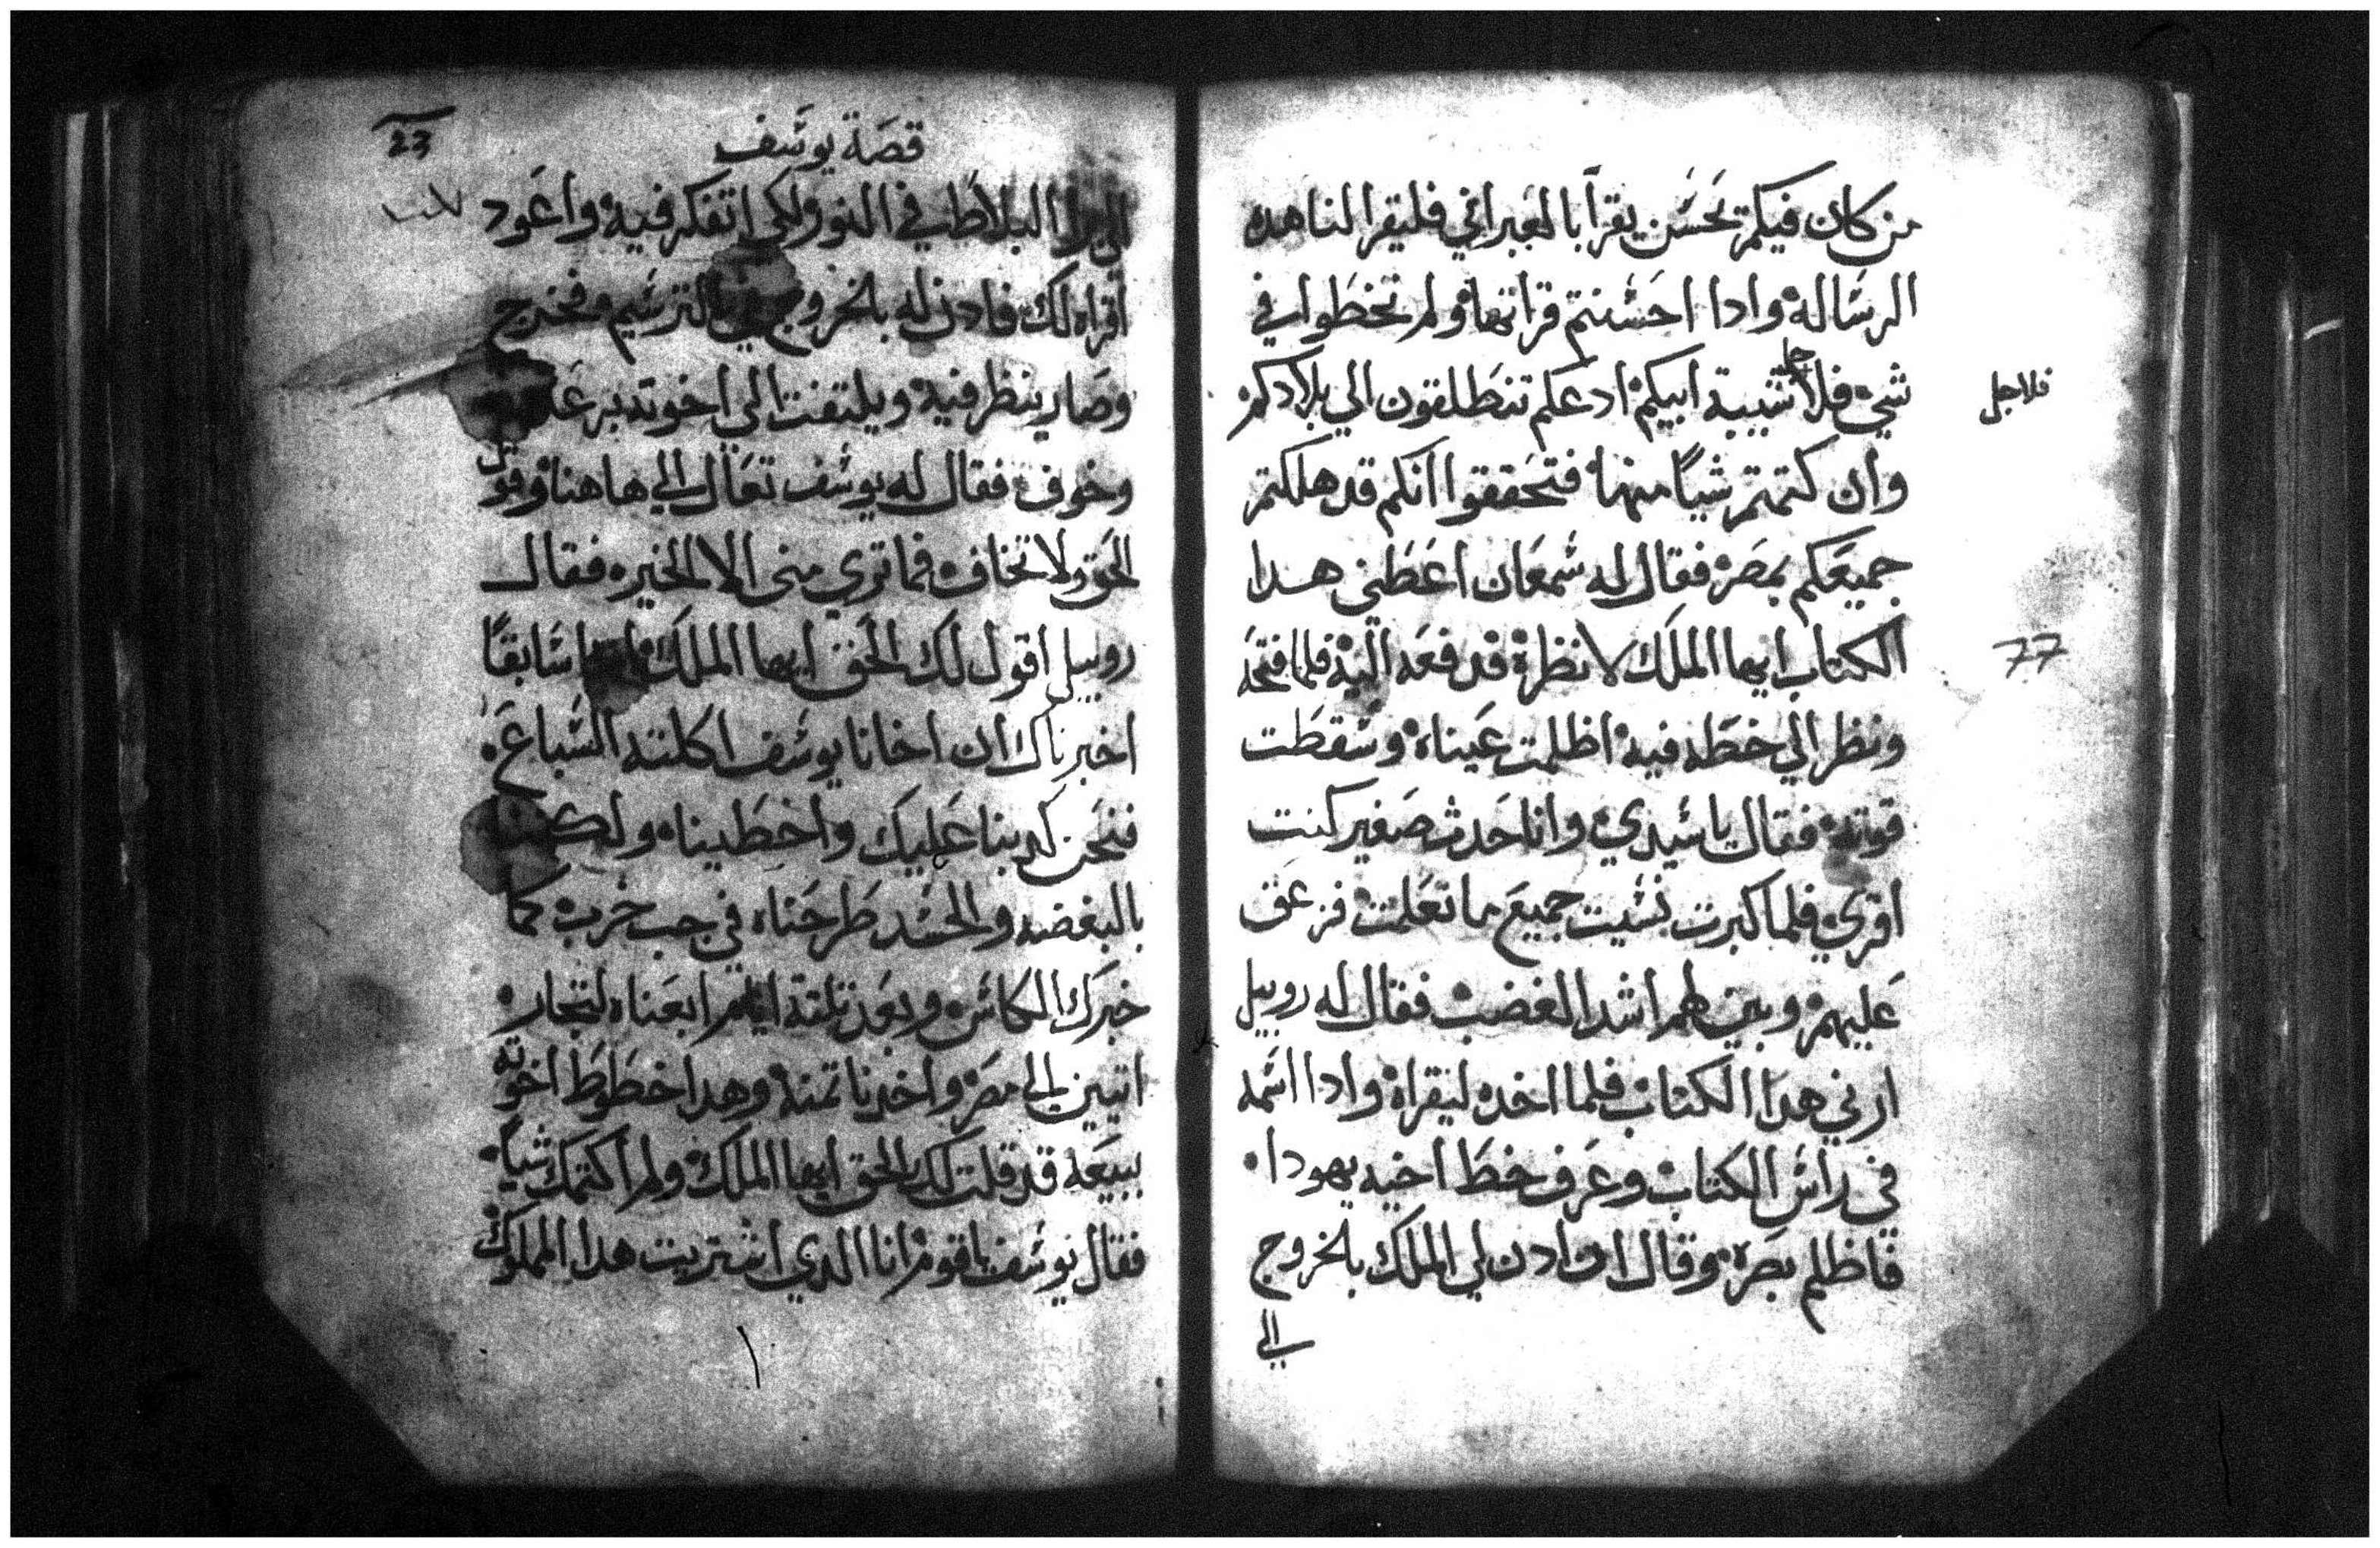 من كان فيكم تحسن يقرا بالعبراني فليقرا لنا هده
الرساله وادا احسنتم قراتها ولم تخطوا في
شي فلاجل شيبة ابيكم ادعكم تنطلقون الي بلادكم
فلاجل
وان كتمتم شياً منها فتحققوا انكم قد هلكتم
جميعكم بمصر فقال له شمعان اعطني هدا
الكتاب ايها الملك لانظره فدفعه اليه فلما فتحه
77
ونظر الي خطه فيه اظلمت عيناه وسقطت
قوته فقال يا سيدي وانا حدث صغير كنت
اقري فلما كبرت نسيت جميع ما تعلمت فزعق
عليهم وبين لهم اشد الغضب فقال له روبيل
ارني هدا الكتاب فلما اخده ليقراه وادا اسمه
في راس الكتاب وعرف خط اخيه يهودا
فاظلم بصره وقال ادن لي الملك بالخروج
الي
قصة يوسف
23
البلاط في النور لكي اتفكر فيه واعود
اقراه لك فادن له بالخروج في الترسيم فخرج
وصار ينظر فيه ويلتفت الي اخوته
وخوف فقال له يوسف تعال الي هاهنا وقول
الحق ولا تخاف فما تري مني الا الخير فقال
روبيل اقول لك الحق ايها الملك سابقاً
اخبرناك ان اخانا يوسف اكلته السباع
فنحن كدبنا عليك واخطيناه
بالبغضه والحسد طرحناه في جب خرب كما
خبرك الكاس وبعد تلتة ايام ابعناه لتجار
اتيين الي مصر واخدنا تمنه وهدا خطوط اخوته
ببيعه قد قلت لك الحق ايها الملك ولم اكتمك شياً
فقال يوسف يا قوم انا الدي اشتريت هدا المملوك